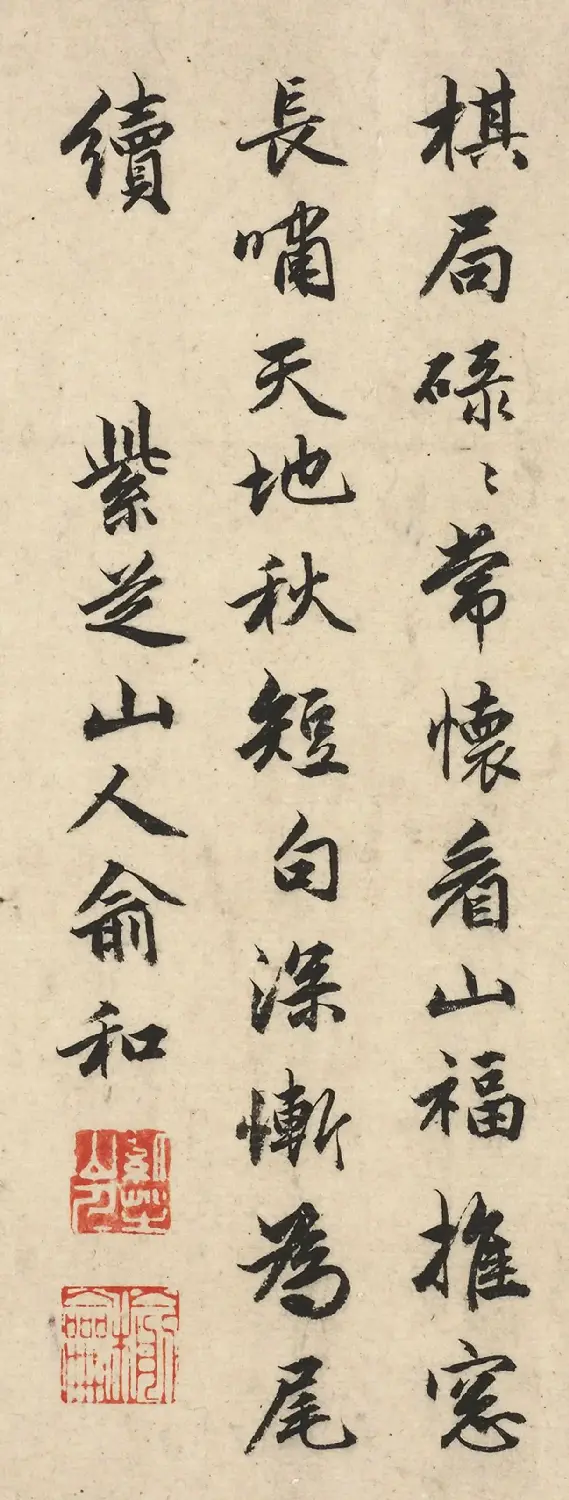 棋局碌〻常懷看山福推窓
長嘯天地秋短句深慚為尾
續 紫芝山人俞和